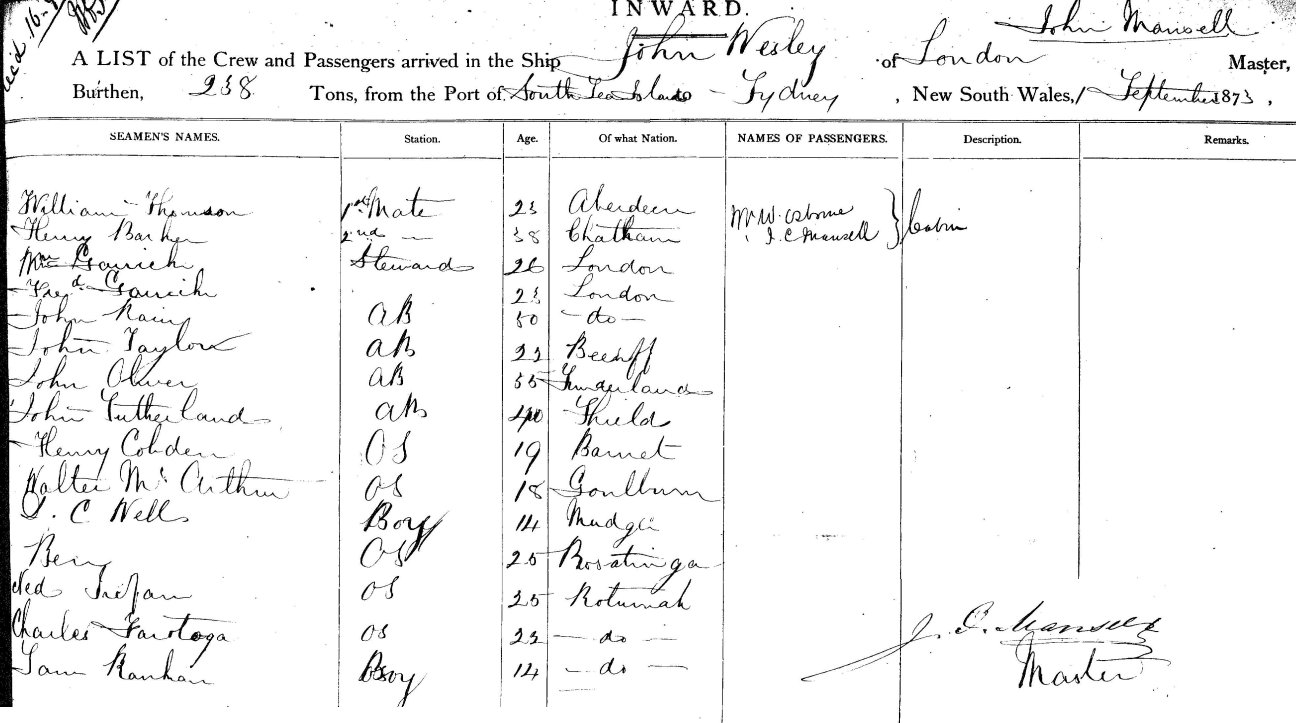 INWARD.
John Mansell
A LIST of the Crew and Passengers arrived in the Ship John Wesley of London Master,
Burthen, 238 Tons, from the Port of South Sea Islands - Sydney, New South Wales, 1 September 1873,
SEAMEN'S NAMES. Station. Age. Of what Nation. NAMES OF PASSENGERS. Description. Remarks.
William Thomson 1st Mate 23 Aberdeen Mr W. Osborne Cabin
Henry Barker 2nd — 38 Chatham " J. C. Mansell
Wm Garrick Steward 26 London
Fred Garrick 23 London
John 50 - do -
John Taylor AB 22
AB
John Oliver AB 55 Sunderland
John Sutherland AB 40 Shield
Henry Cobden OS 19 Barnet
Walter Mc Arthur OS 18 Goulburn
C Wells Boy 14 Mudgee
OS 25
Ned OS 25 Rotumah
Charles OS 22 - do -
Sam Boy 14 - do -
J. C. Mansell
Master